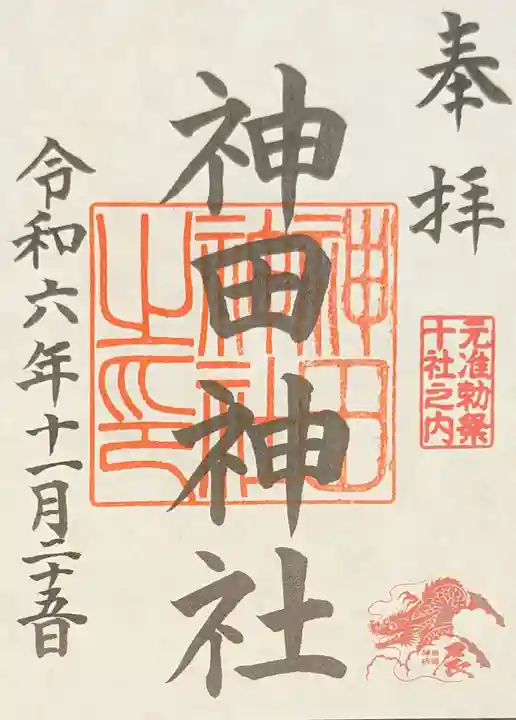 奉拝
元准勅祭
十社之内
辰
神田神社
神田
神社
之印
令和六年十一月二十五日